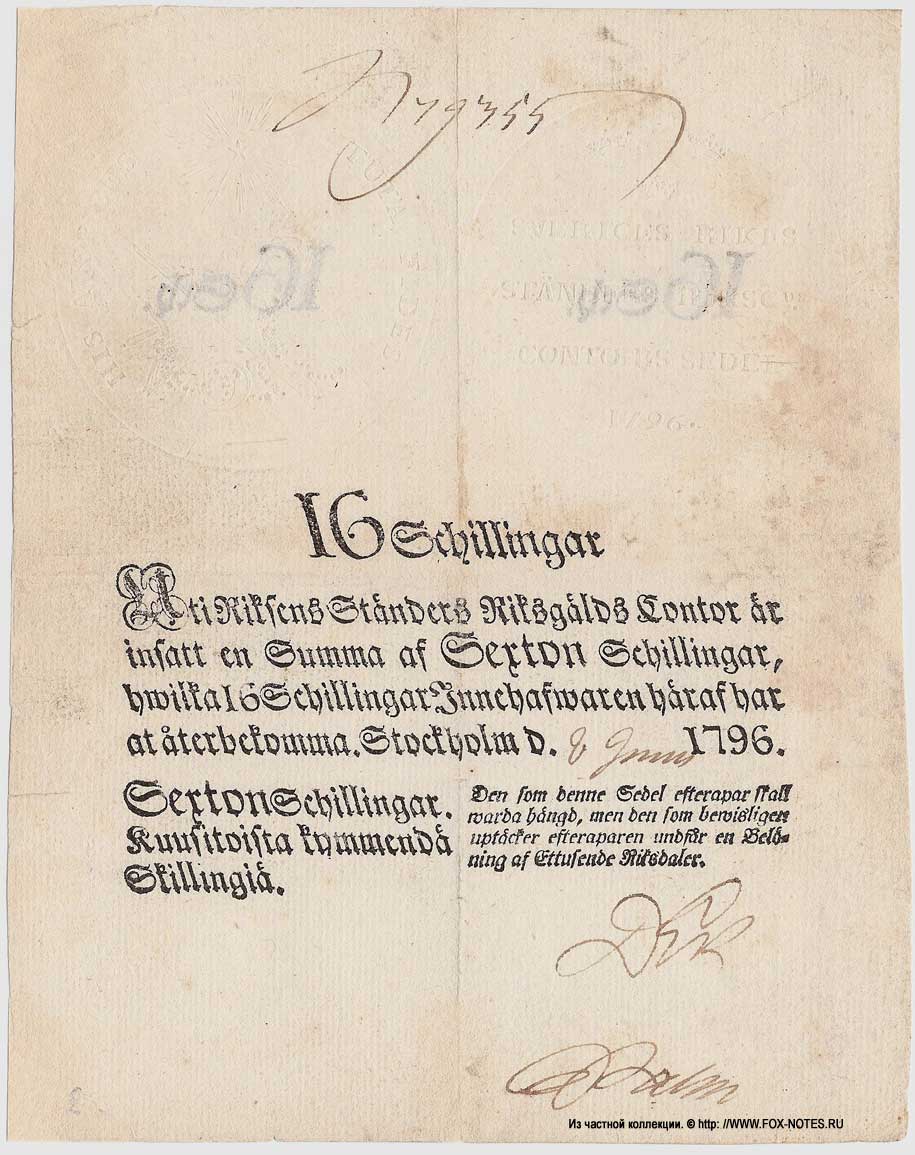 16 Schillingar
Uti Riksens Ständers Riksgälds Contor är
insatt en Summa af Sexton Schillingar,
hwilka 16 Schillingar Innehafwaren häraf har
at återbekomma. Stockholm d. 8 Junii 1796.
Sexton Schillingar.
Kuusitoista kymmendä
Skillingiä.
Den som denne Sedel efterapar skall
warda hängd, men den som bewisligen
uptäcker efteraparen undfår en Belö-
ning af Ettusende Riksdaler.
Palm
Из частной коллекции. © http: //WWW.FOX-NOTES.RU